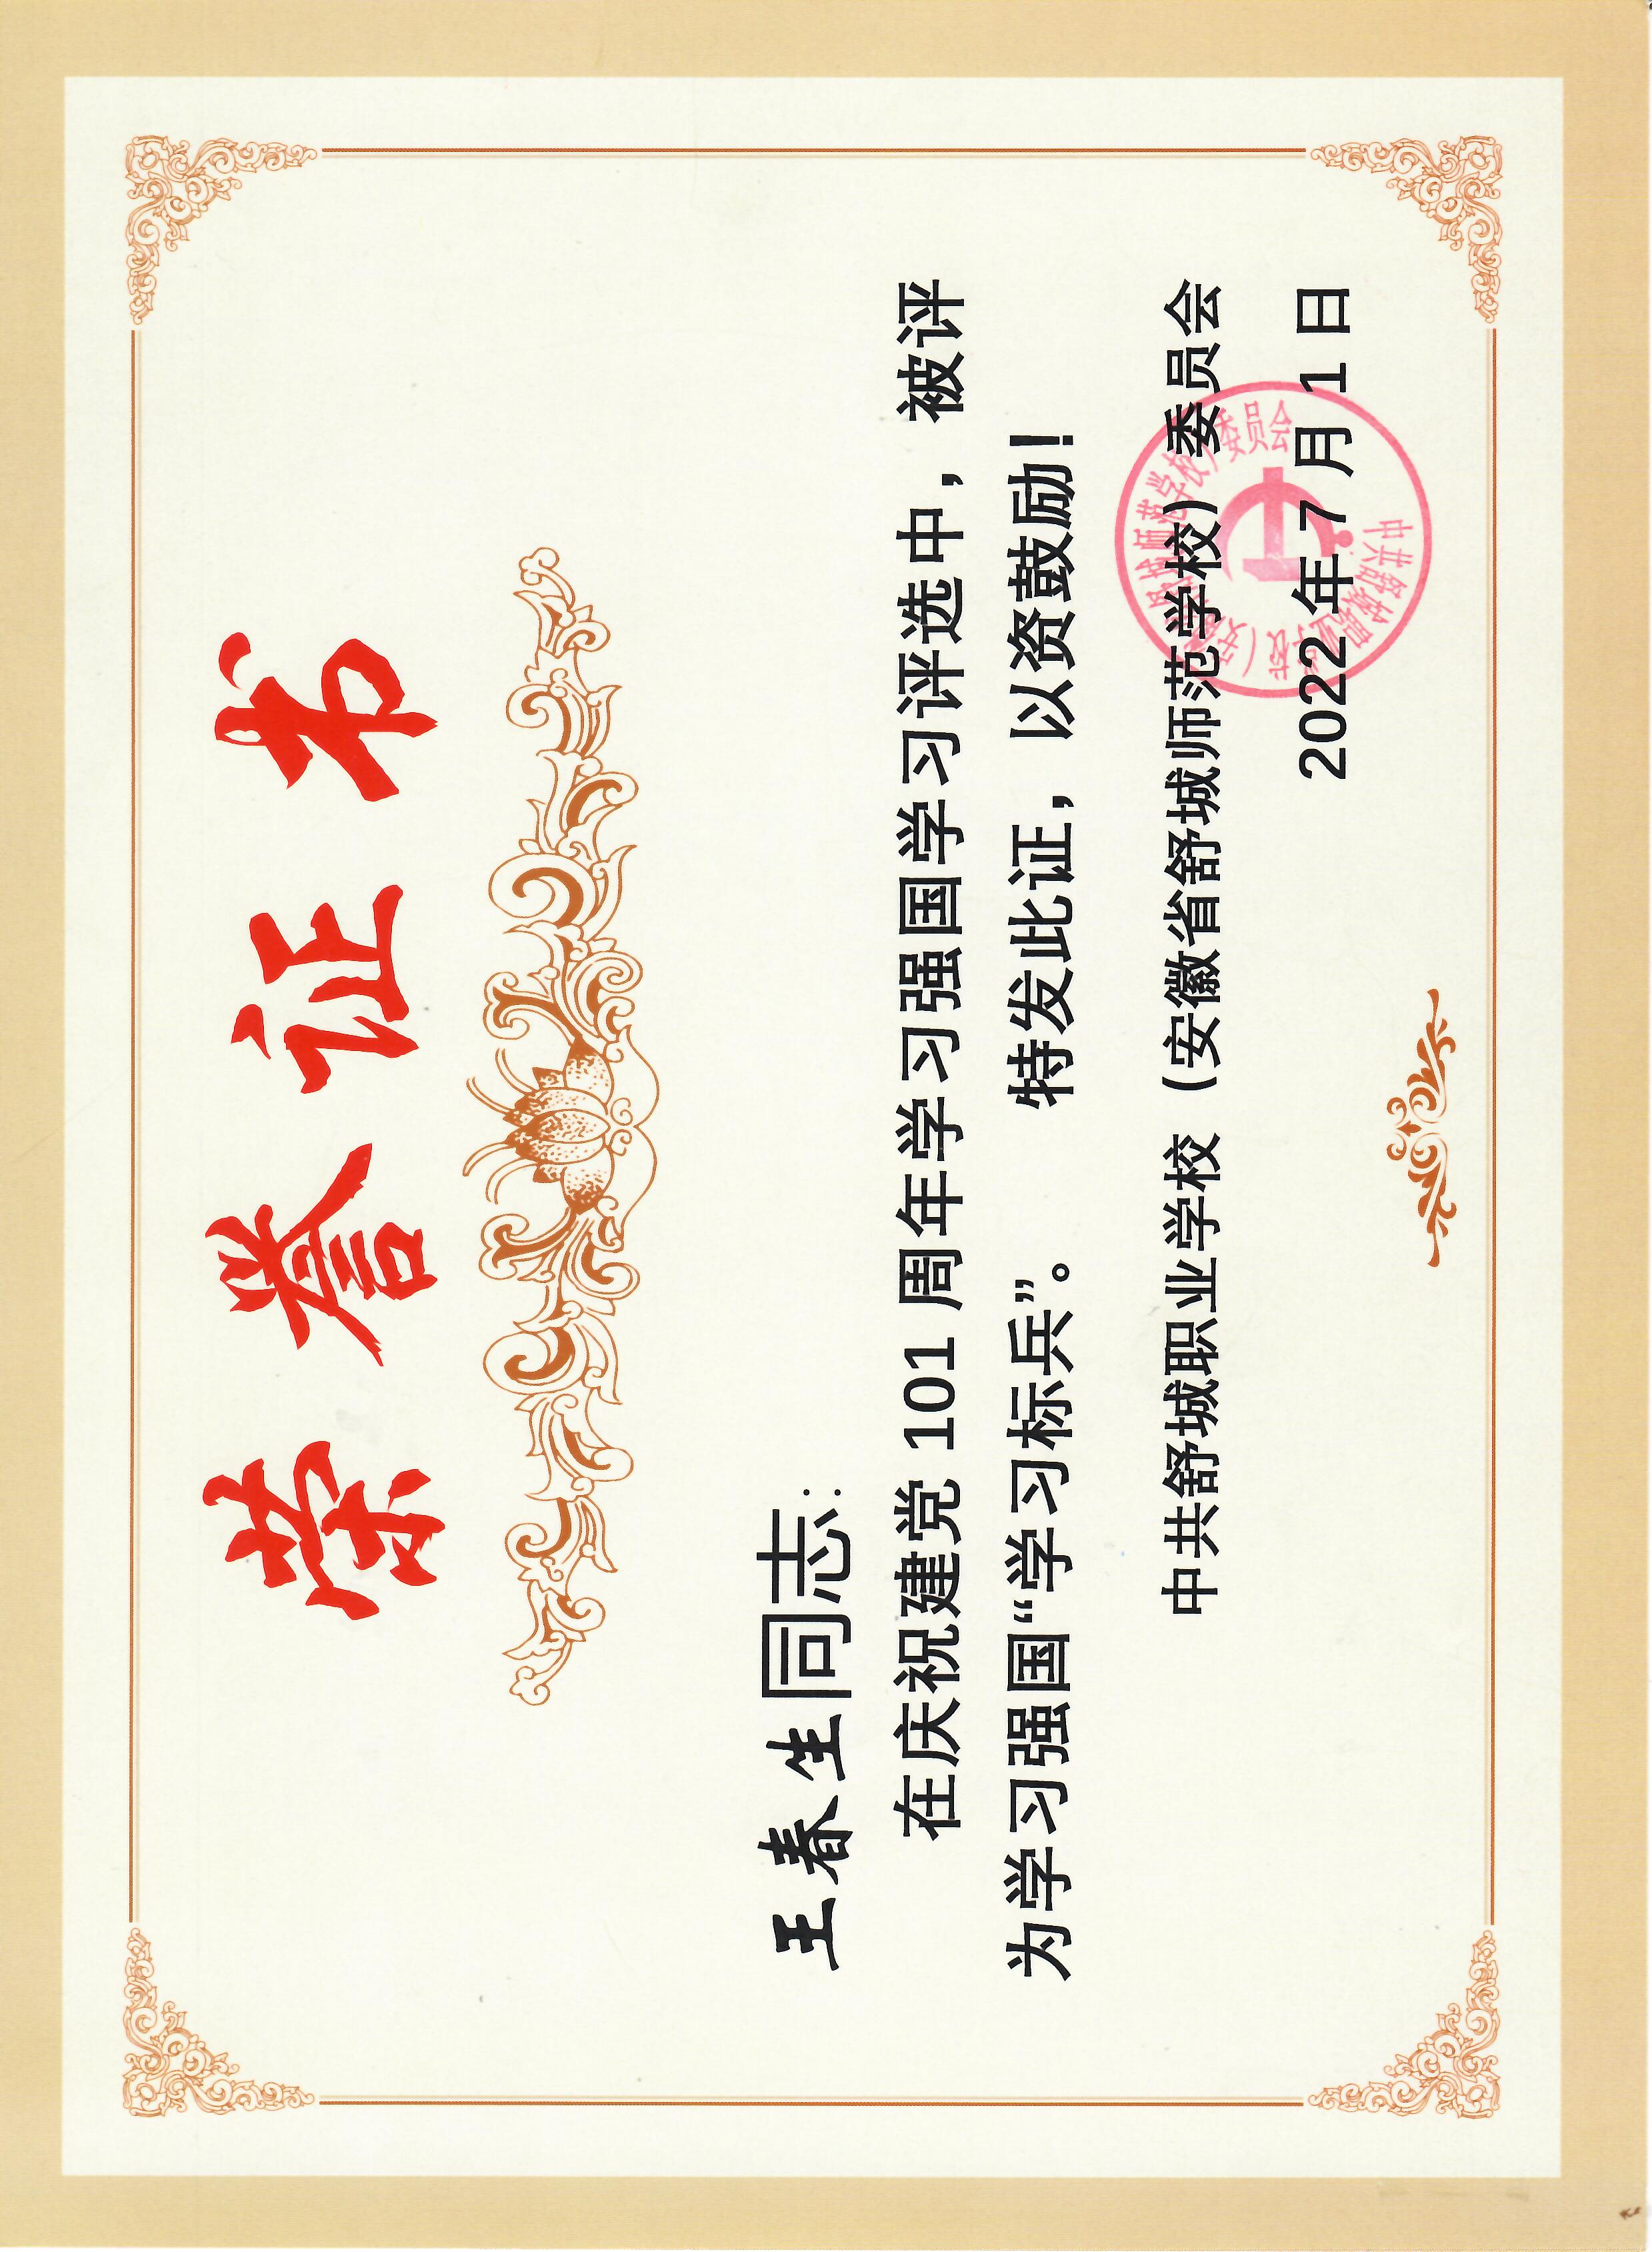 荣誉证书
王春生同志：
在庆祝建党 101 周年学习强国学习评选中，被评
为学习强国“学习标兵”。 特发此证，以资鼓励！
中共舒城职业学校（安徽省舒城师范学校）委员会
2022 年 7 月 1 日
中共舒城职业学校（安徽省舒城师范学校）委员会